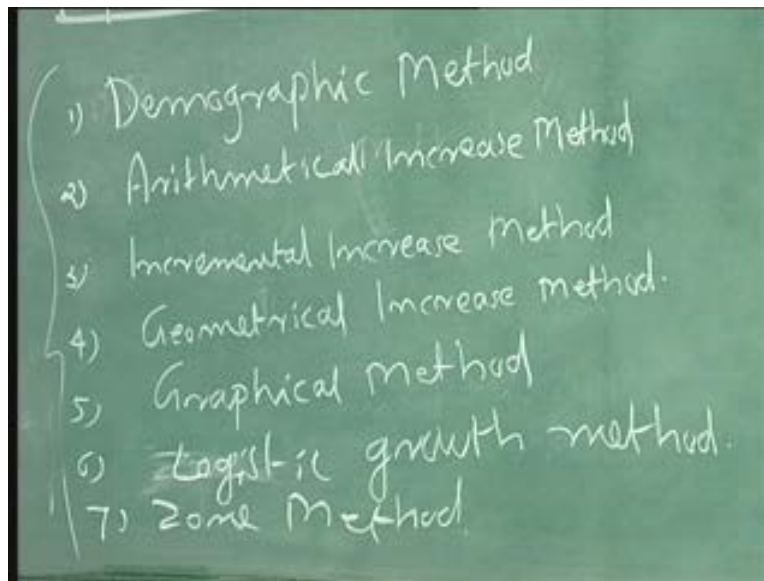 1) Demographic Method
2) Arithmetical Increase Method
3) Incremental Increase Method
4) Geometrical Increase Method.
5) Graphical Method
6) Logistic growth method.
7) Zone Method